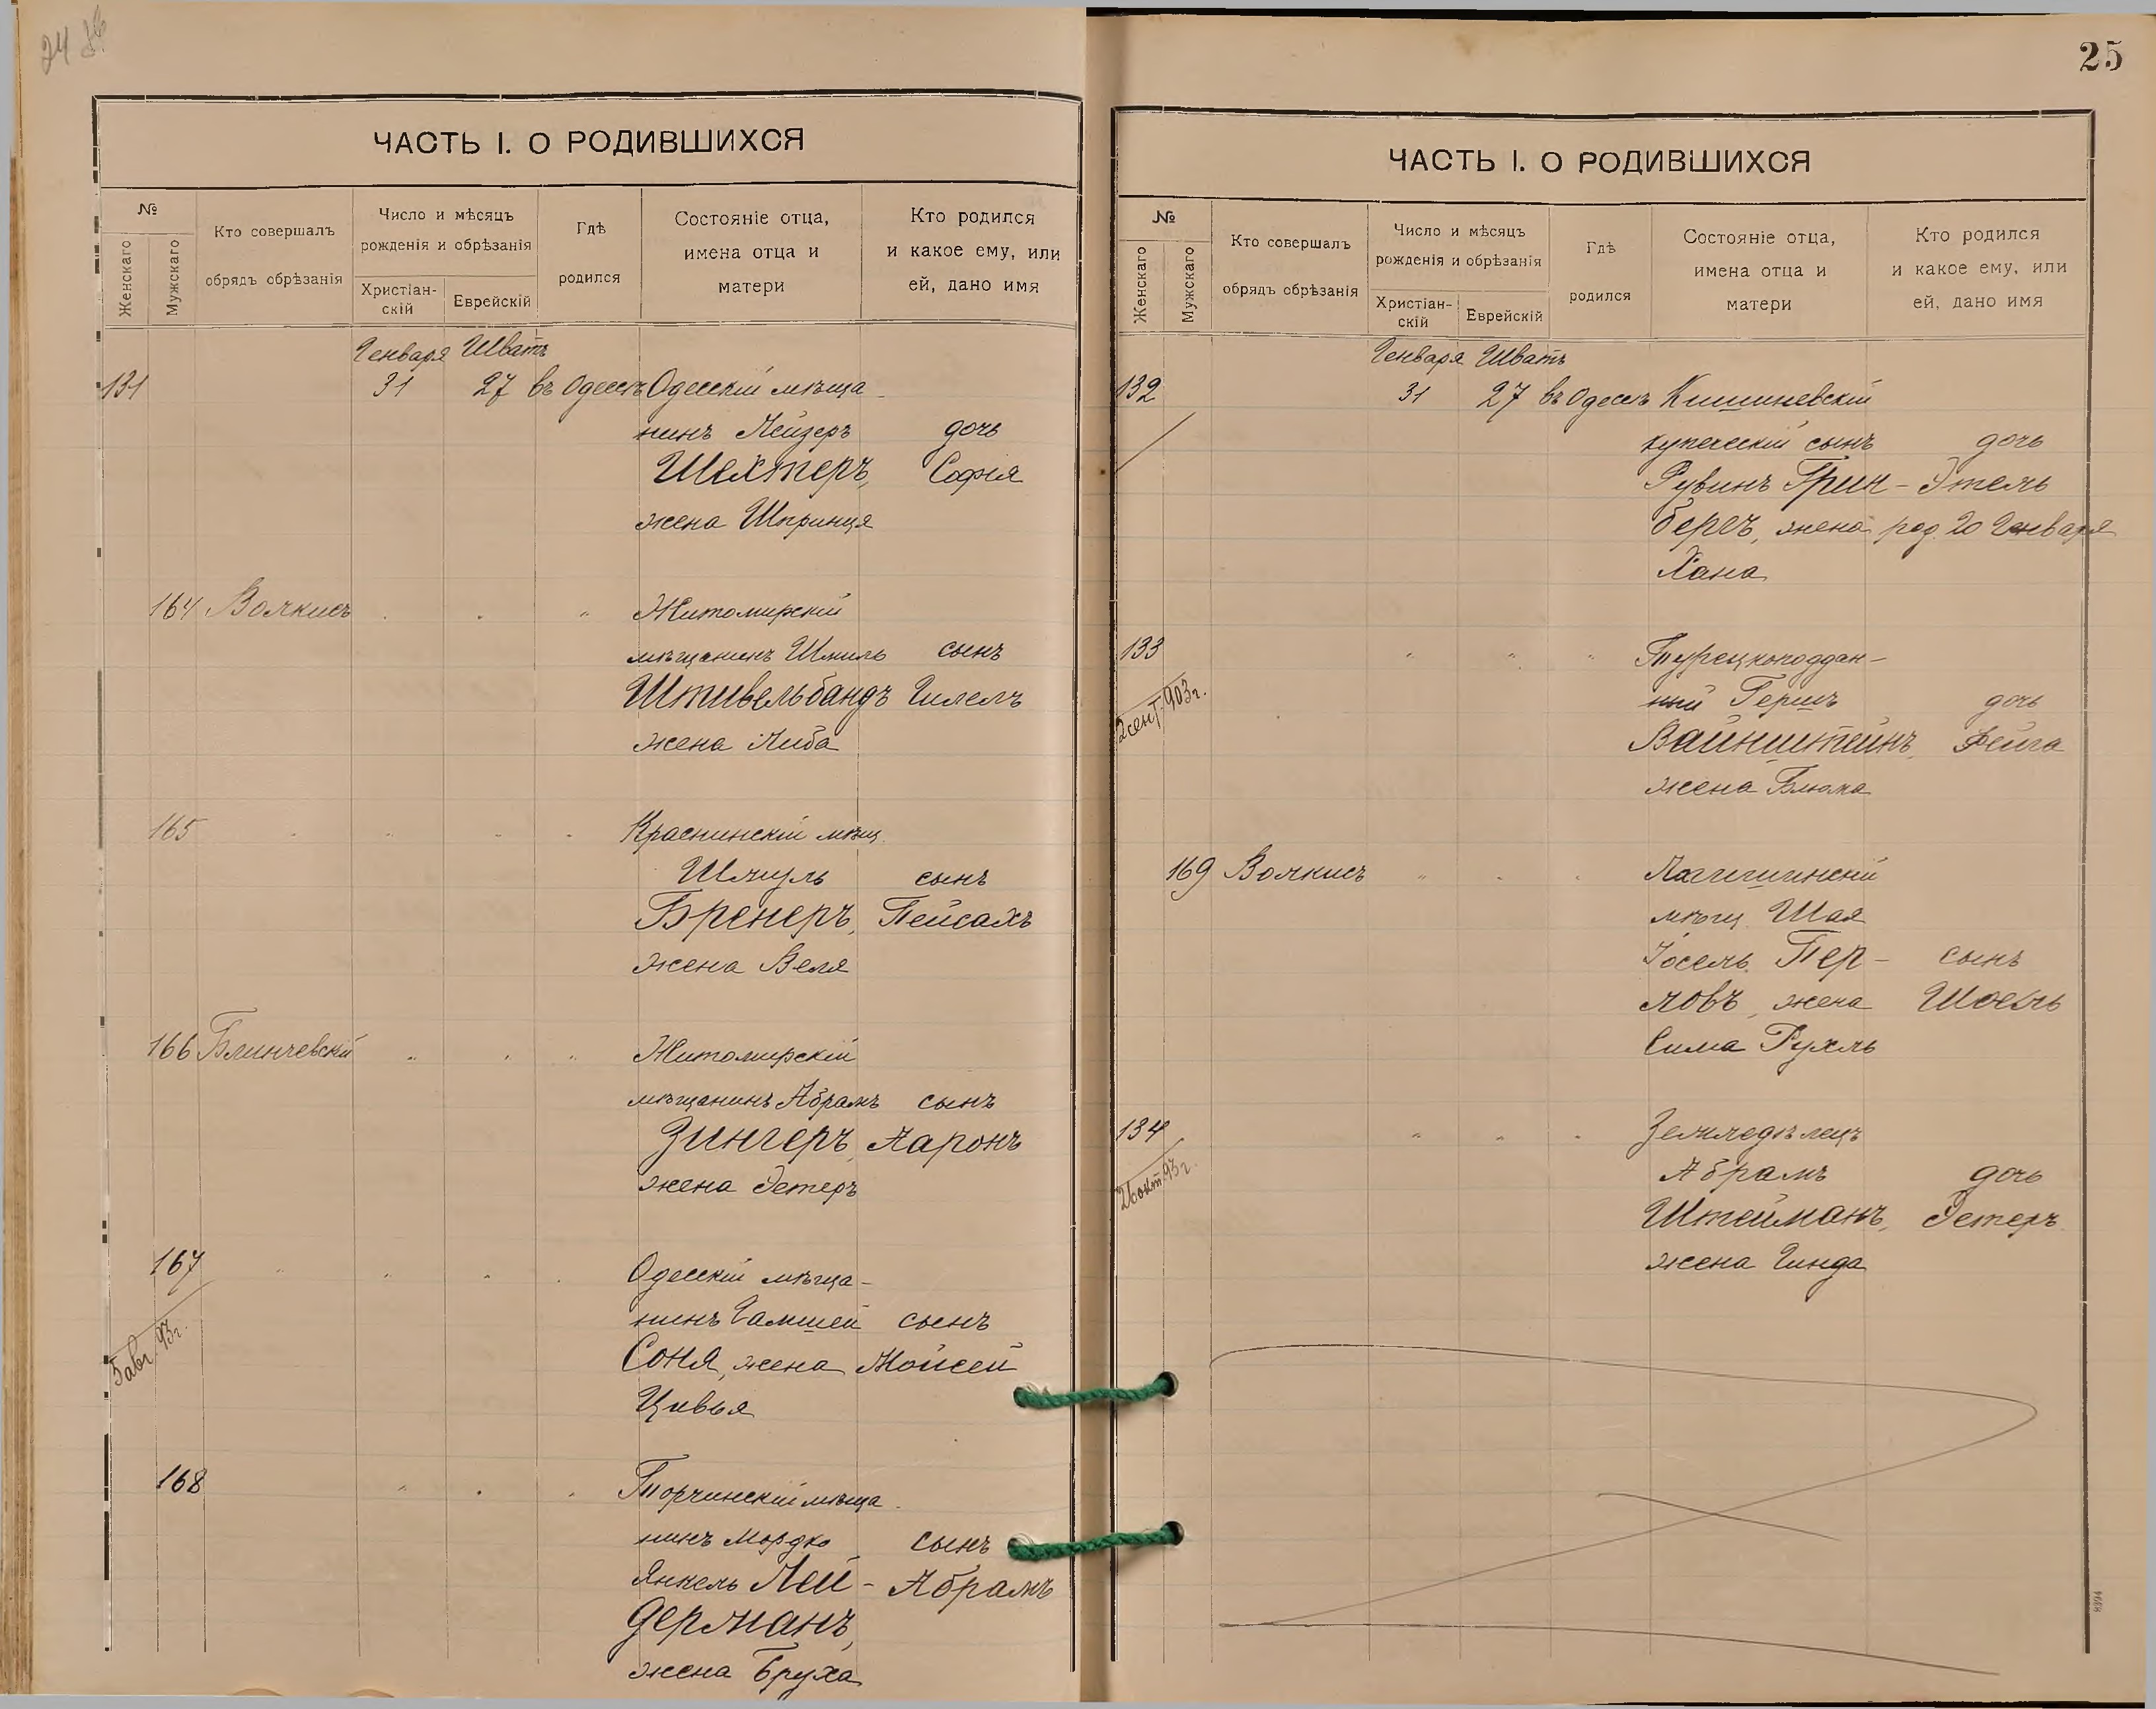 24
ЧАСТЬ I. О РОДИВШИХСЯ
№
Женскаго
Мужскаго
Кто совершалъ
обрядъ обрѣзанія
Число и мѣсяцъ
рожденія и обрѣзанія
Христіан-
скій
Еврейскій
Гдѣ
родился
Состояніе отца,
имена отца и
матери
Кто родился
и какое ему, или
ей, дано имя
Генваря Шватъ
131 31 27 въ Одессѣ Одесскій мѣща-
нинъ Лейзеръ дочь
Шехтеръ, Софія
жена Шпринця
164 Волкисъ " " " Житомирскій
мѣщанинъ Шмиль сынъ
Штивельбандъ Гилелъ
жена Либа
165 " " " " Краснинскій мѣщ.
Шмуль сынъ
Бренеръ, Пейсахъ
жена Веля
166 Блинчевскій " " " Житомирскій
мѣщанинъ Абрамъ сынъ
Зингеръ, Ааронъ
жена Эстеръ
167 " " " " Одесскій мѣща-
5 авг. 93 г.
нинъ Гамшей сынъ
Соня, жена Мойсей
Цивья
168 " " " Торчинскій мѣща-
нинъ Мордко сынъ
Янкель Лей- Абрамъ
дерманъ,
жена Бруха
25
ЧАСТЬ I. О РОДИВШИХСЯ
№
Женскаго
Мужскаго
Кто совершалъ
обрядъ обрѣзанія
Число и мѣсяцъ
рожденія и обрѣзанія
Христіан-
скій
Еврейскій
Гдѣ
родился
Состояніе отца,
имена отца и
матери
Кто родился
и какое ему, или
ей, дано имя
Генваря Шватъ
132 31 27 въ Одессѣ Кишиневскій
купеческій сынъ дочь
Рувинъ Грин- Этель
бергъ, жена род. 20 Генваря
Хана
133 " " " Турецкоподдан-
2 сент. 903 г.
ный Гершъ дочь
Вайнштейнъ, Фейга
жена Блюма
169 Волкисъ " " " Логишинскій
мѣщ. Шая
Іосель Пер- сынъ
ловъ, жена
Сима Рухль
134 " " " Земледѣлецъ
26 окт. 93 г.
Абрамъ дочь
Штейманъ, Эстеръ
жена Гинда